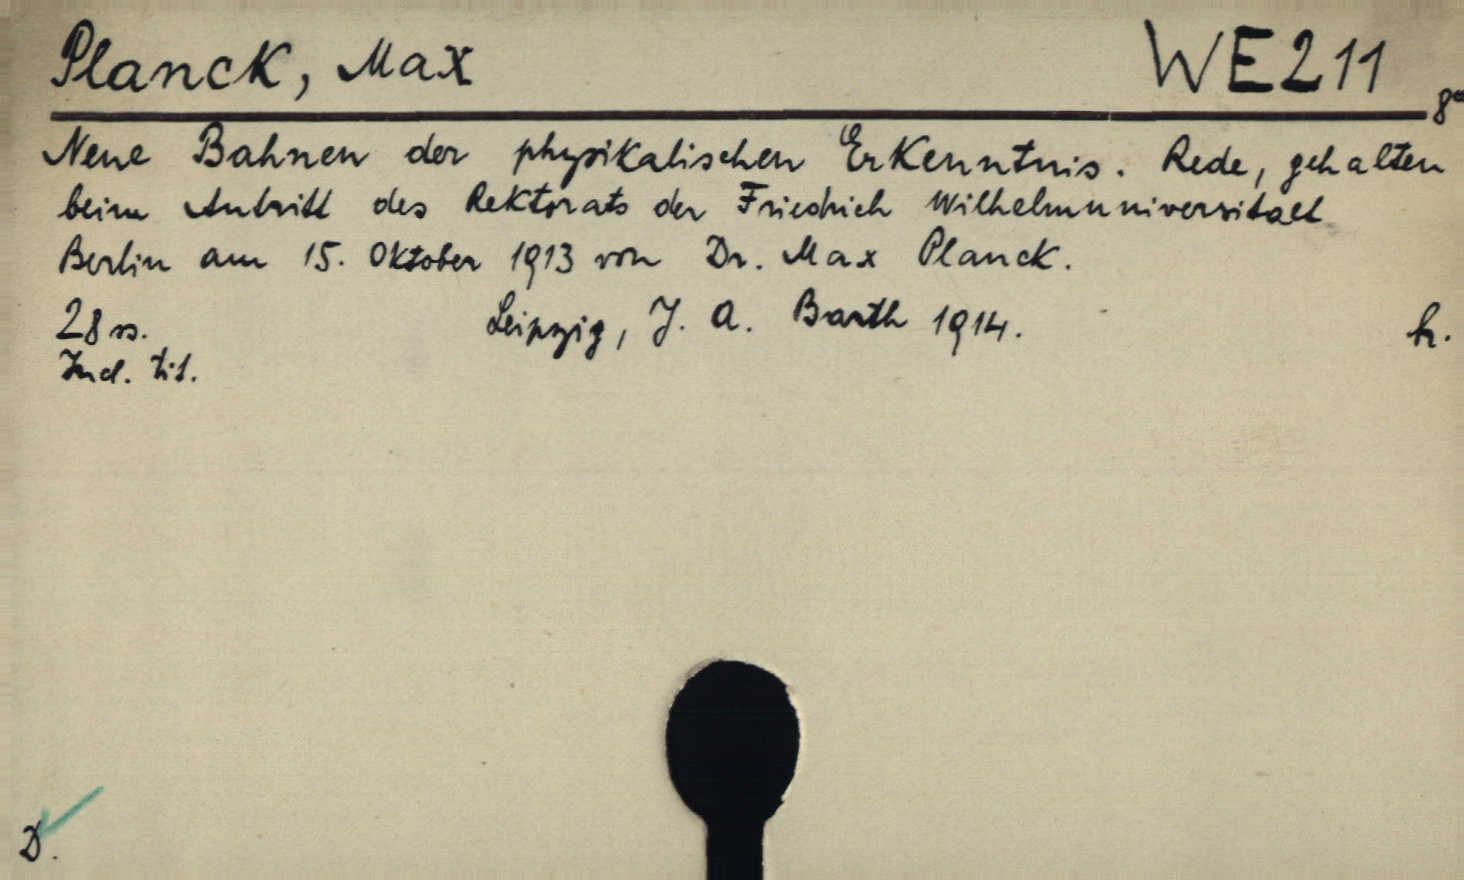 Planck, Max WE211
8°
Neue Bahnen der physikalischen Erkenntnis. Rede, gehalten
beim Antritt des Rektorats der Friedrich Wilhelmuniversität
Berlin am 15. Oktober 1913 von Dr. Max Planck.
28 ss. Leipzig, J. A. Barth 1914. h.
Ind. tit.
D.